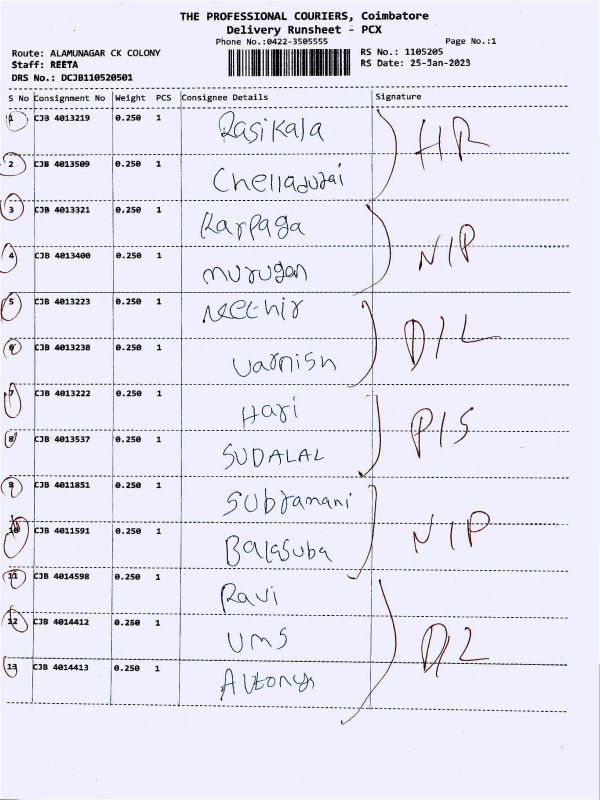 THE PROFESSIONAL COURIERS, Coimbatore
Delivery Runsheet - PCX
Phone No.:0422-3505555 Page No.:1
Route: ALAMUNAGAR CK COLONY RS No.: 1105205
Staff: REETA RS Date: 25-Jan-2023
DRS No.: DCJB110520501
S No Consignment No Weight PCS Consignee Details Signature
1 CJB 4013219 0.250 1 Rasikala
HR
2 CJB 4013509 0.250 1 Chelladurai
3 CJB 4013321 0.250 1 Karpaga
N/P
4 CJB 4013400 0.250 1 murugan
5 CJB 4013223 0.250 1
D/L
6 CJB 4013238 0.250 1 varnish
7 CJB 4013222 0.250 1 Hari
P/S
8 CJB 4013537 0.250 1 SUDALAL
9 CJB 4011851 0.250 1 Subramani
N/P
10 CJB 4011591 0.250 1 Balasuba
11 CJB 4014598 0.250 1 Ravi
12 CJB 4014412 0.250 1 UMS
DL
13 CJB 4014413 0.250 1